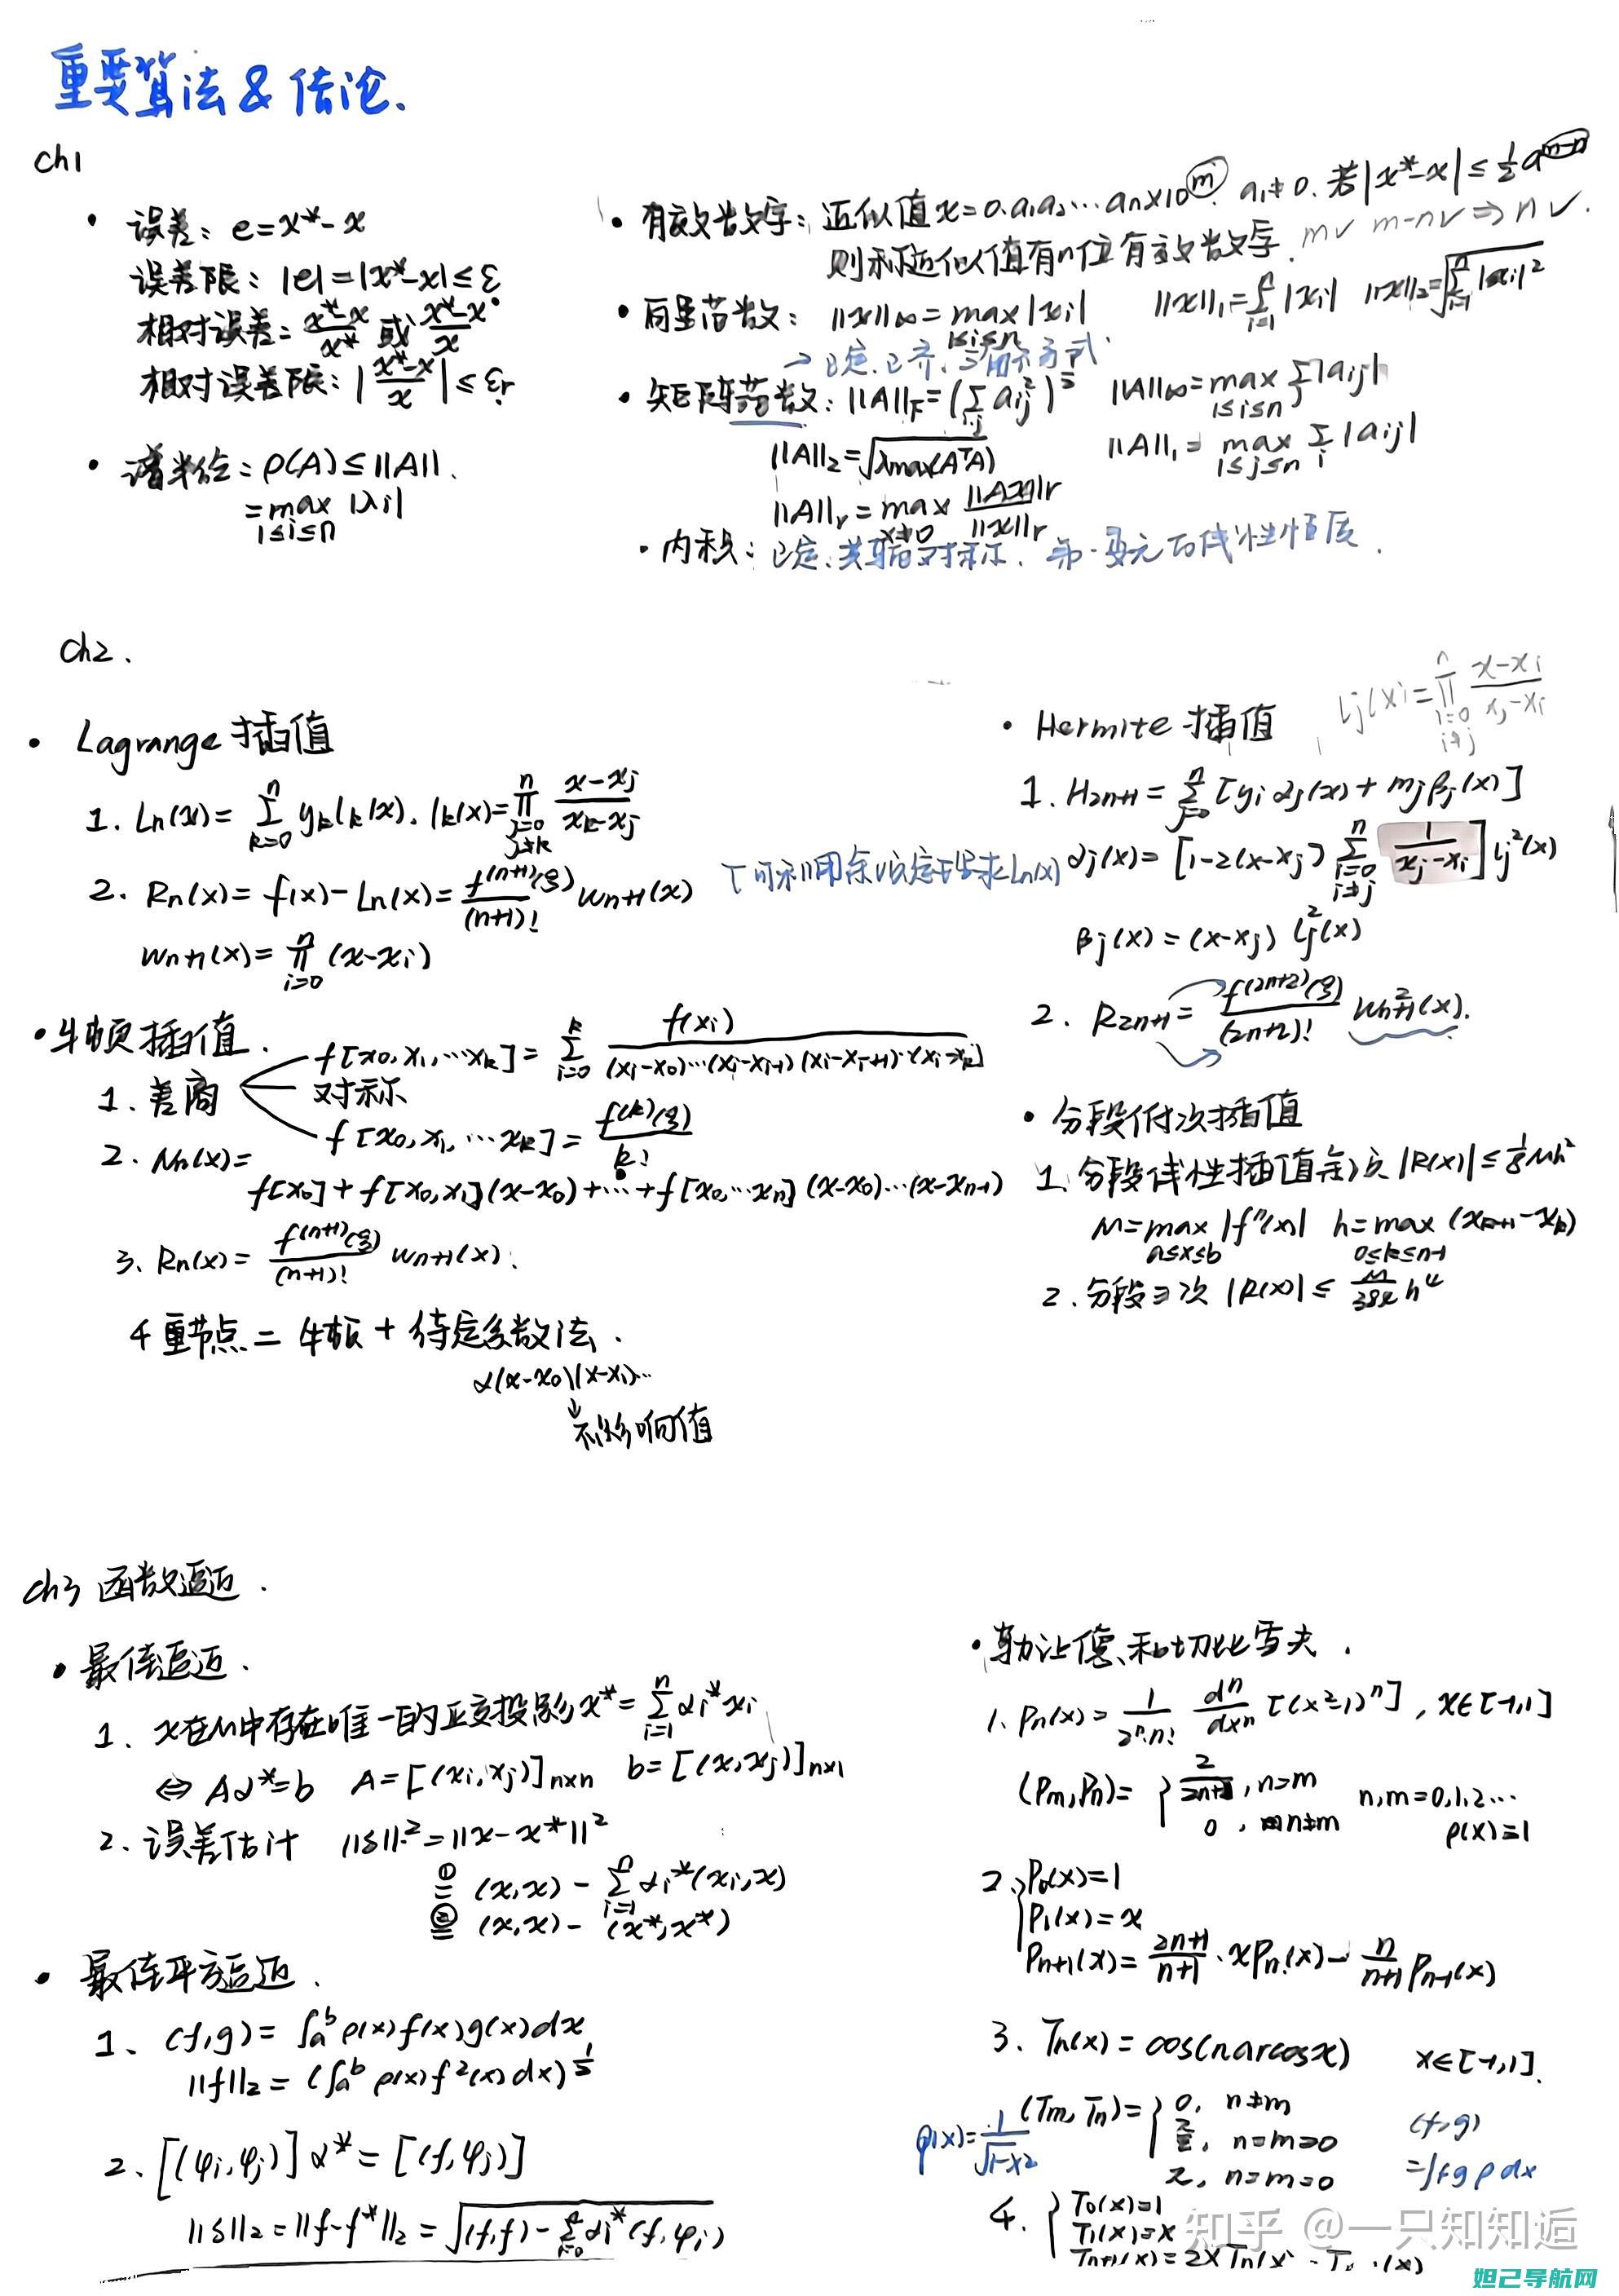 重要算法 & 结论.
ch1
· 误差: e=x*-x
误差限: |e|=|x*-x|≤ε
相对误差= (x*-x)/x* 或 (x*-x)/x
相对误差限: |(x*-x)/x|≤εr
· 谱半径: ρ(A)≤||A||.
=max 1≤i≤n |λi|
· 有效数字: 近似值x=0.a1a2…an×10^m. a1≠0. 若|x*-x|≤½a^(m-n)
则称近似值有n位有效数字. m✓ m-n✓ ⇒ n✓.
· 向量范数: ||x||∞=max 1≤i≤n |xi| ||x||1=Σ i=1 n |xi| ||x||2=√(Σ i=1 n |xi|²)
→ 正定.正齐.三角不等式.
· 矩阵范数: ||A||F=(Σ i,j aij²)^½ ||A||∞=max 1≤i≤n Σ j |aij|
||A||2=√(λmax(AᵀA)) ||A||1=max 1≤j≤n Σ i |aij|
||A||r=max x≠0 ||Ax||r/||x||r
· 内积: 正定.共轭对称. 第一变元的线性性质.
ch2.
· Lagrange 插值
1. Ln(x)=Σ k=0 n yk lk(x). lk(x)=∏ j=0 j≠k n (x-xj)/(xk-xj)
2. Rn(x)=f(x)-Ln(x)=f^(n+1)(ξ)/(n+1)! wn+1(x)
wn+1(x)=∏ i=0 n (x-xi)
· 牛顿插值.
1. 差商
f[x0,x1,…xk]=Σ i=0 k f(xi)/((xi-x0)…(xi-xi-1)(xi-xi+1)…(xi-xk))
对称
f[x0,x1,…xk]=f^(k)(ξ)/k!
2. Nn(x)=
f[x0]+f[x0,x1](x-x0)+…+f[x0,…xn](x-x0)…(x-xn-1)
3. Rn(x)=f^(n+1)(ξ)/(n+1)! wn+1(x).
4 重节点 = 牛顿 + 待定系数法.
α(x-x0)(x-x1)…
↓
不影响值
· Hermite 插值 lj(x)=∏ i=0 i≠j n (x-xi)/(xj-xi)
1. H2n+1=Σ j=0 n [yi αj(x)+mjβj(x)]
αj(x)=[1-2(x-xj)Σ i=0 i≠j n 1/(xj-xi)] lj²(x)
βj(x)=(x-xj) lj²(x)
2. R2n+1=f^(2n+2)(ξ)/(2n+2)! wn+1²(x).
· 分段低次插值
1. 分段线性插值余项 |R(x)|≤⅛Mh²
M=max a≤x≤b |f''(x)| h=max 0≤k≤n-1 (xk+1-xk)
2. 分段三次 |R(x)|≤ M/384 h⁴
ch3 函数逼近.
· 最佳逼近.
1. x在M中存在唯一的正交投影x*=Σ i=1 n αi*xi
⇔ Aα*=b A=[(xi,xj)]n×n b=[(x,xj)]n×1
2. 误差估计 ||δ||²=||x-x*||²
①= (x,x)-Σ i=1 n αi*(xi,x)
②= (x,x)-(x*,x*)
· 最佳平方逼近.
1. (f,g)=∫a^b ρ(x)f(x)g(x)dx
||f||2=(∫a^b ρ(x)f²(x)dx)^½
2. [(φi,φj)]α*=[(f,φj)]
||δ||2=||f-f*||2=√((f,f)-Σ i=0 n αi*(f,φi))
· 勒让德和切比雪夫.
1. Pn(x)=1/(2ⁿn!) dⁿ/dxⁿ [(x²-1)ⁿ], x∈[-1,1]
(Pm,Pn)={2/(2n+1), n=m n,m=0,1,2…
0, m≠m ρ(x)=1
2. {P0(x)=1
P1(x)=x
Pn+1(x)=(2n+1)/(n+1)·xPn(x)-n/(n+1)Pn-1(x)
3. Tn(x)=cos(narccosx) x∈[-1,1].
ρ(x)=1/√(1-x²) (Tm,Tn)={0, n≠m (f,g)
π/2, n=m≠0 =∫fgρdx
π, n=m=0
4. {T0(x)=1
T1(x)=x
Tn+1(x)=2xTn(x)-T
知乎 @一只知知逅
妲己导航网